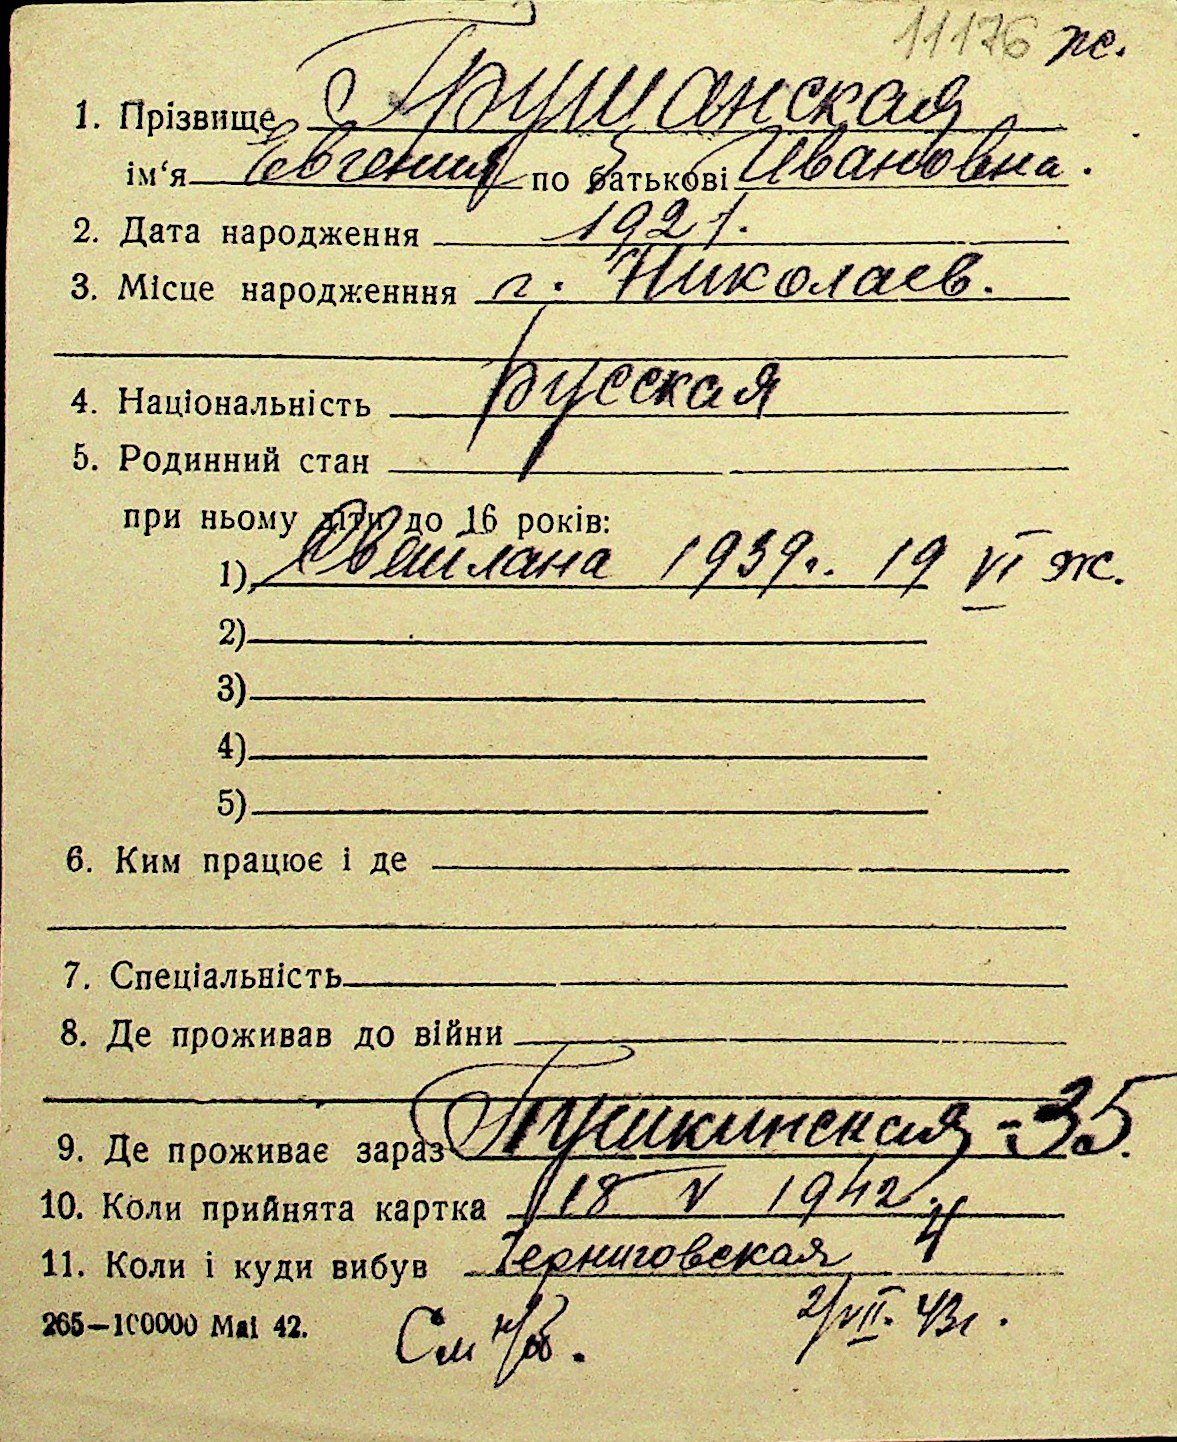 11176 ж.
1. Прізвище Грушанская
ім‘я Евгения по батькові Ивановна.
2. Дата народження 1921.
3. Місце народженння г. Николаев.
4. Національність русская
5. Родинний стан
при ньому діти до 16 років:
1) Светлана 1939г. 19 VI ж.
2)
3)
4)
5)
6. Ким працює і де
7. Спеціальність
8. Де проживав до війни
9. Де проживає зараз Пушкинская - 35.
10. Коли прийнята картка 18 V 1942.
11. Коли і куди вибув Черниговская 4
265—100000 Маі 42. См н/об. 2/VII. 43г.